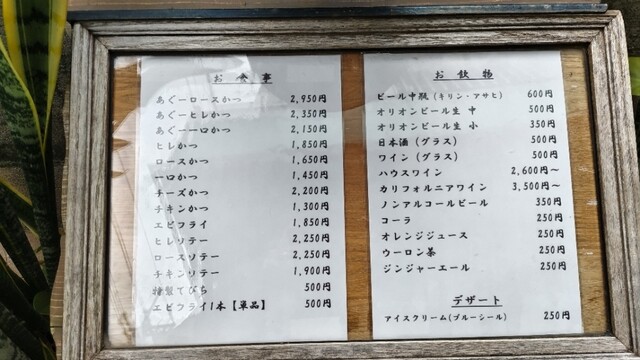 お食事
あぐーロースかつ 2,950円
あぐーヒレかつ 2,350円
あぐー一口かつ 2,150円
ヒレかつ 1,850円
ロースかつ 1,650円
一口かつ 1,450円
チーズかつ 2,200円
チキンかつ 1,300円
エビフライ 1,850円
ヒレソテー 2,250円
ロースソテー 2,250円
チキンソテー 1,900円
特製てびち 500円
エビフライ1本【単品】 500円
お飲物
ビール中瓶(キリン・アサヒ) 600円
オリオンビール生 中 500円
オリオンビール生 小 350円
日本酒(グラス) 500円
ワイン(グラス) 500円
ハウスワイン 2,600円~
カリフォルニアワイン 3,500円~
ノンアルコールビール 350円
コーラ 250円
オレンジジュース 250円
ウーロン茶 250円
ジンジャーエール 250円
デザート
アイスクリーム(ブルーシール) 250円